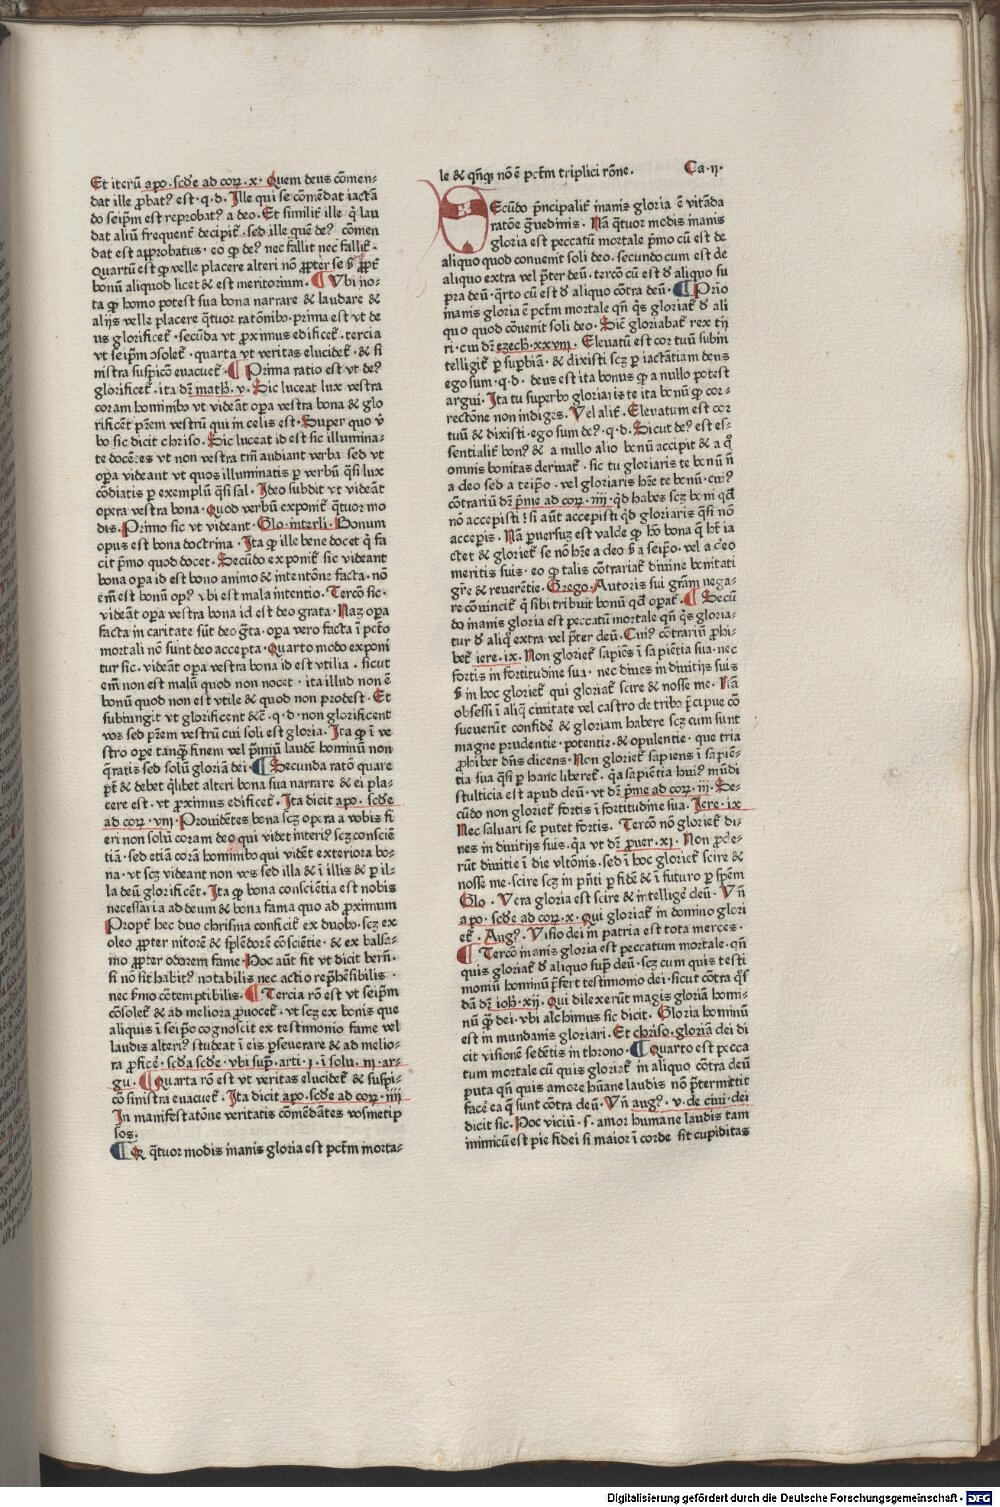 Et iterū apo. scďe ad corꝝ. x. Quem deus cōmen-
dat ille ꝓbatꝰ est. q. d. Ille qui se cōmēdat iactā
do seip̄m est reprobatꝰ a deo. Et similiť ille q̄ lau
dat aliū frequenť decipiť. sed ille quē deꝰ cōmen
dat est apꝓbatus. eo ꝙ deꝰ nec fallit nec falliť.
Quartū est ꝙ velle placere alteri nō ꝓpter se
bonū aliquod licet & est meritorium. Vbi no-
ta ꝙ homo potest sua bona narrare & laudare &
alijs velle placere q̄tuor ratōnibꝰ. prima est vt de
us glorificeť. secūda vt ꝓximus edificeť. tercia
vt seip̄m ɔsoleť. quarta vt veritas elucideť. & si
nistra suspicō euacueť. Prima ratio est vt deꝰ
glorificeť. ita dr̄ math. v. Sic luceat lux vestra
coram hominibꝰ vt videāt oꝑa vestra bona & glo
rificēt pr̄em vestrū qui in celis est. Super quo v̓
bo sic dicit chriso. Sic luceat id est sic illumina-
te docētes vt non vestra tm̄ audiant verba sed vt
oꝑa videant vt quos illuminatis ꝑ verbū q̄si lux
cōdiatis ꝑ exemplū q̄si sal. Ideo subdit vt videāt
opera vestra bona. Quod verbū exponiť q̄tuor mo
dis. Primo sic vt videant. Glo. interli. Bonum
opus est bona doctrina. Ita ꝙ ille bene docet q̄ fa
cit pͥmo quod docet. Secūdo exponiť sic videant
bona oꝑa id est bono animo & intentōne facta. nō
em̄ est bonū opꝰ vbi est mala intentio. Tercō sic.
videāt oꝑa vestra bona id est deo grata. Naꝫ oꝑa
facta in caritate sūt deo gͣta. oꝑa vero facta ī pctō
mortali nō sunt deo accepta. Quarto modo exponi
tur sic. videāt oꝑa vestra bona id est vtilia. sicut
em̄ non est malū quod non nocet. ita illud non ē
bonū quod non est vtile & quod non prodest. Et
subiungit vt glorificent &c̄. q. d. non glorificent
vos sed pr̄em vestrū cui soli est gloria. Ita ꝙ ī ve
stro oꝑe tanqͣꝫ finem vel p̄miū laudē hominū non
q̄ratis sed solū gloriā dei. Secunda ratō quare
pt̄ & debet qͥlibet alteri bona sua narrare & ei pla-
cere est. vt ꝓximus edificeť. Ita dicit apo. scďe
ad corꝝ. viij. Prouidētes bona scꝫ opera a vobis fi
eri non solū coram deo qui videt interiꝰ scꝫ consciē
tiā. sed etiā corā hominibꝰ qui vidēt exteriora bo-
na. vt scꝫ videant non vos sed illa & ī illis & ꝑ il-
la deū glorificēt. Ita ꝙ bona consciētia est nobis
necessaria ad deum & bona fama quo ad ꝓximum
Propť hec duo chrisma conficiť ex duobꝰ. scꝫ ex
oleo ꝓpter nitorē & splēdorē cōsciētie. & ex balsa-
mo ꝓpter odorem fame. Hoc aūt fit vt dicit bern̄.
si nō sit habitꝰ notabilis nec actio repͥhēsibilis.
nec sͬmo cōtemptibilis. Tercia rō est vt seip̄m
cōsoleť & ad meliora ꝓuoceť. vt scꝫ ex bonis que
aliquis ī seip̄o cognoscit ex testimonio fame vel
laudis alteriꝰ studeat ī eis ꝑseuerare & ad melio-
ra ꝓficē. scďa scďe. vbi supͣ. arti. j. ī solu. iij. ar-
gu. Quarta rō est vt veritas elucideť & suspi-
cō sinistra euacueť. Ita dicit apo. scďe ad corꝝ. iiij
In manifestatōne veritatis cōmēdātes vosmetip
sos.
q̄tuor modis inanis gloria est pctm̄ morta-
le & qn̄qꝫ nō ē pctm̄ triplici rōne. Ca. ij.
Ecūdo pͥncipaliť inanis gloria ē vitāda
ratōe gͣuedinis. Nā q̄tuor modis inanis
gloria est peccatū mortale pͥmo cū est de
aliquo quod conuenit soli deo. secundo cum est de
aliquo extra vel pͥter deū. tercō cū est ď aliquo su
pra deū. qͣrto cū est ď aliquo cōtra deū. Prio
inanis gloria ē pctm̄ mortale qn̄ qͥs gloriať ď ali
quo quod cōuenit soli deo. Sic̄ gloriabaſ rex tij
ri. cui dr̄ ezech. xxviij. Eleuatū est cor tuū subin
telligiť ꝑ suꝑbiā. & dixisti scꝫ ꝑ iactātiam deus
ego sum. q. d. deus est ita bonus ꝙ a nullo potest
argui. Ita tu superbo gloriaris te ita bonū ꝙ cor-
rectōne non indiges. Vel aliť. Eleuatum est cor
tuū & dixisti. ego sum deꝰ. q. d. Sicut deꝰ est es-
sentialiť bonꝰ & a nullo alio bonū accipit & a qͦ
omnis bonitas deriuať. sic tu gloriaris te bonū n̄
a deo sed a teip̄o. vel gloriaris hr̄e te bonū. cuiꝰ
cōtrariū dr̄ pͥme ad corꝝ. iiij. qͥd habes scꝫ boni qd̓
nō accepisti? si aūt accepisti qͥd gloriaris q̄si nō
acceperis. Nā ꝑuersuꝫ est valde ꝙ hō bona q̄ hꝫ ia
ctet & glorieť se nō hr̄e a deo sꝫ a seip̄o. vel a deo
meritis suis. eo ꝙ talis cōtrariať diuine bonitati
gr̄e & reuerētie. Grego. Autoris sui grām nega-
re cōuinciť q̄ sibi tribuit bonū qd̓ oꝑať. Secū
do inanis gloria est peccatū mortale qn̄ qͥs gloria-
tur ď aliqͦ extra vel pͥter deū. Cuiꝰ cōtrariū ꝓhi-
beť iere. ix. Non glorieť sapiēs ī sapiētia sua. nec
fortis in fortitudine sua. nec diues in diuitijs suis
sꝫ in hoc glorieť qui gloriať scire & nosse me. Nā
obsessi ī aliqͣ ciuitate vel castro de tribꝰ pͥcipue cō
sueuerūt confidē & gloriam habere scꝫ cum sunt
magne prudentie. potentie. & opulentie. que tria
ꝓhibet dn̄s dicens. Non glorieť sapiens ī sapiē-
tia sua q̄si ꝑ hanc libereť. qꝛ sapiētia huiꝰ mūdi
stulticia est apud deū. vt dr̄ pͥme ad corꝝ. iij. Se-
cūdo non glorieť fortis ī fortitudine sua. Iere. ix
Nec saluari se putet fortis. Tercō nō glorieť di-
nes in diuitijs suis. qꝛ vt dr̄ ꝓuer. xj. Non ꝓde-
rūt diuitie ī die vltōnis. sed ī hoc glorieť scire &
nosse me. scire scꝫ in pn̄ti ꝑ fidē & ī futuro ꝑ spēm
Glo. Vera gloria est scire & intelligē deū. Vn̄
apo. scďe ad corꝝ. x. Qui gloriať in domino glori
eť. Augꝰ. Visio dei in patria est tota merces.
Tercō inanis gloria est peccatum mortale. qn̄
quis gloriať ď aliquo supͣ deū. scꝫ cum quis testi
moniū hominū pͥfert testimonio dei. sicut cōtra qͦs
dā dr̄ ioh. xij. Qui dilexerūt magis gloriā homi-
nū qͣꝫ dei. vbi alchimus sic dicit. Gloria hominū
est in mundanis gloriari. Et chriso. gloriā dei di
cit visionē sedētis in throno. Quarto est pecca
tum mortale cū quis gloriať in aliquo cōtra deū
puta qn̄ quis amore hūane laudis nō pͥtermittit
facē ea q̄ sunt cōtra deū. Vn̄ augꝰ. v. de ciui. dei
dicit sic. Hoc viciū. s. amor humane laudis tam
inimicū est pie fidei si maior ī corde sit cupiditas
Digitalisierung gefördert durch die Deutsche Forschungsgemeinschaft - DFG